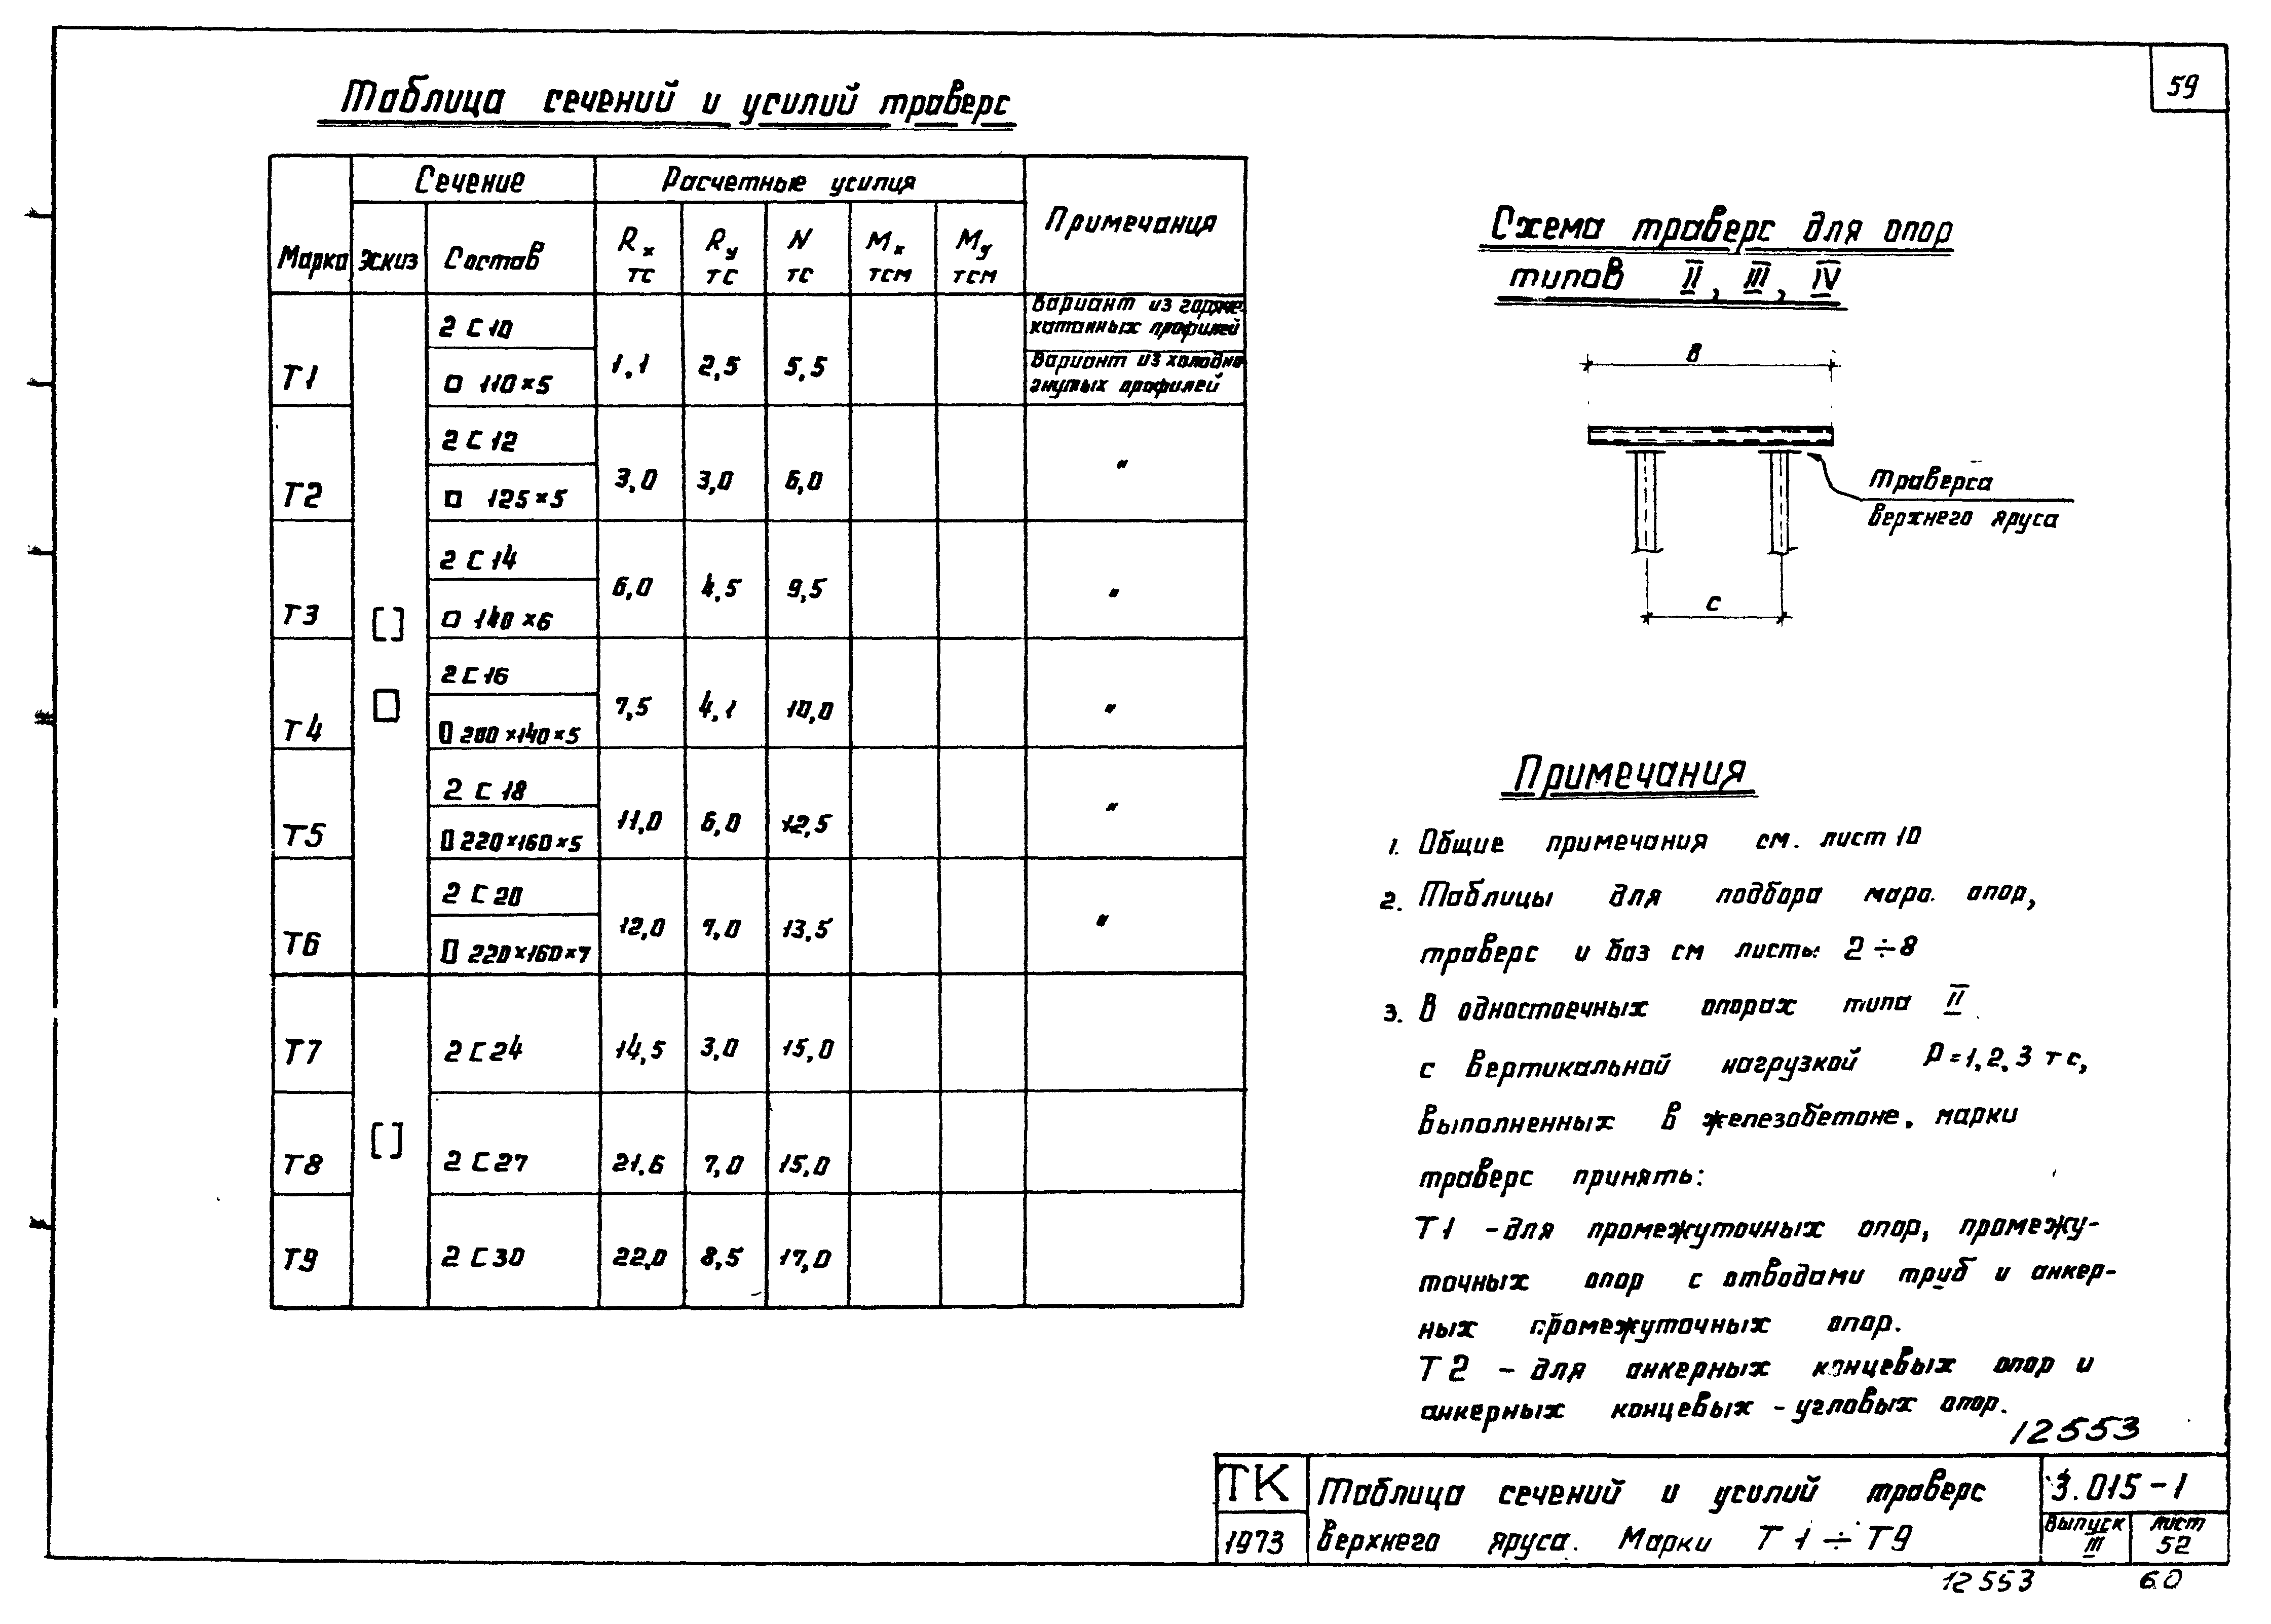 59
Таблица сечений и усилий траверс
Марка Сечение Расчетные усилия Примечания
Эскиз Состав Rx тс Ry тс N тс Mx тсм My тсм
Т1 2 С 10 1,1 2,5 5,5 Вариант из горяче-
катанных профилей
□ 110×5 Вариант из холодно
гнутых профилей
Т2 2 С 12 3,0 3,0 6,0 "
□ 125×5
Т3 2 С 14 6,0 4,5 9,5 "
□ 140×6
Т4 2 С 16 7,5 4,1 10,0 "
▯ 200×140×5
Т5 2 С 18 11,0 6,0 12,5 "
▯ 220×160×5
Т6 2 С 20 12,0 7,0 13,5 "
▯ 220×160×7
Т7 2 С 24 14,5 3,0 15,0
Т8 2 С 27 21.6 7,0 15,0
Т9 2 С 30 22,0 8,5 17,0
Схема траверс для опор
типов II, III, IV
в
Траверса
верхнего яруса
с
Примечания
1. Общие примечания см. лист 10
2. Таблицы для подбора опор,
траверс и баз см листы 2÷8
3. В одностоечных опорах типа II
с вертикальной нагрузкой Р=1,2,3 тс,
выполненных в железобетоне, марки
траверс принять:
Т1 - для промежуточных опор, промежу-
точных опор с отводами труб и анкер-
ных промежуточных опор.
Т2 - для анкерных концевых опор и
анкерных концевых - угловых опор.
12553
ТК Таблица сечений и усилий траверс 3.015-1
1973 верхнего яруса. Марки Т1÷Т9 выпуск III лист 52
12553 60